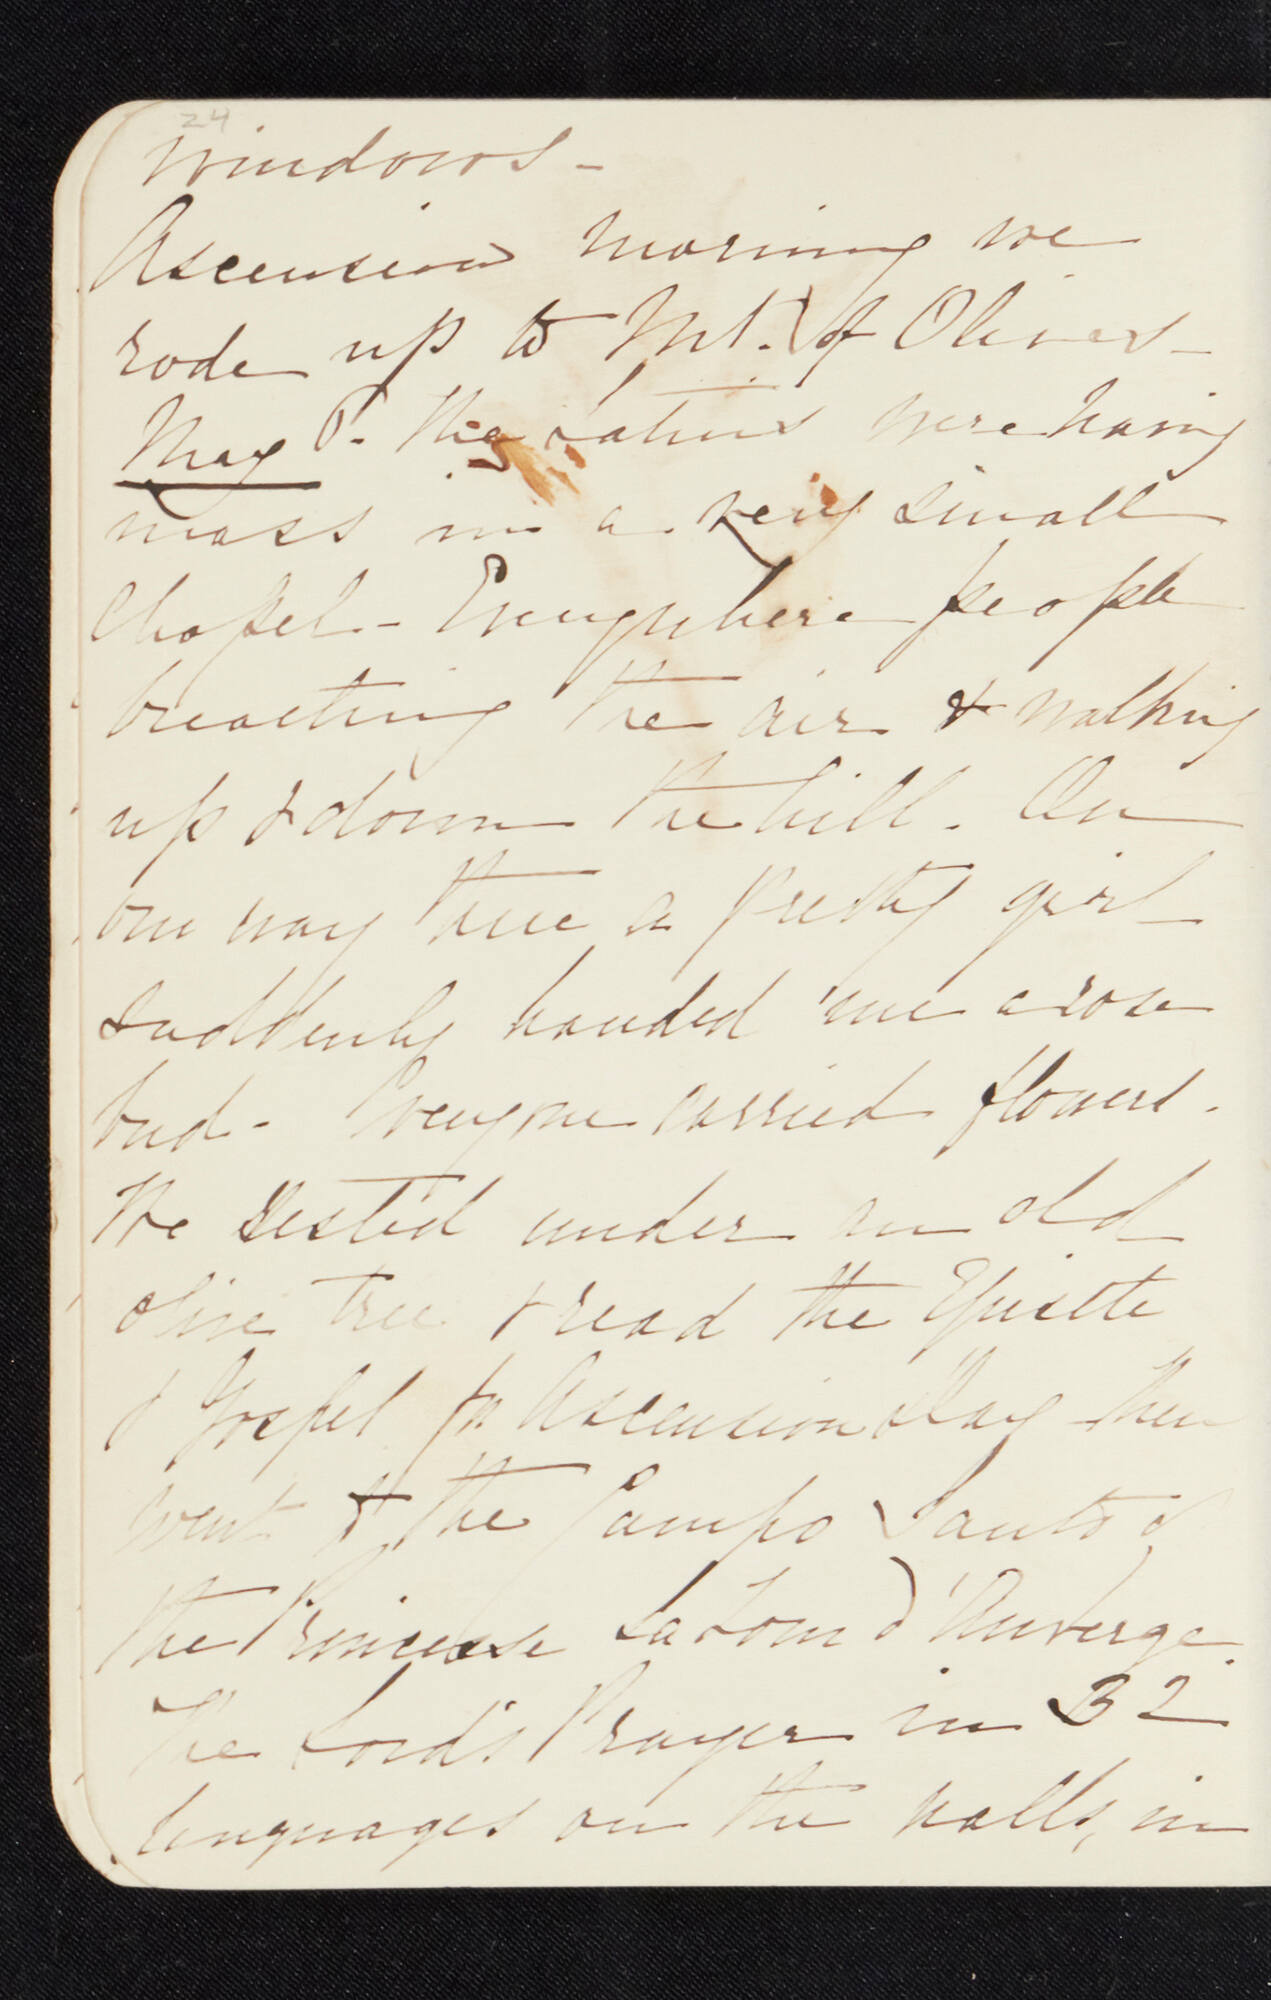 24
windows -
Ascension morning we
rode up to Mt. of Olives -
May 8. The Latins were having
mass in a very small
Chapel - Everywhere people
breasting the air & walking
up & down the hill. On
our way there a pretty girl
suddenly handed me a rose
bud - Everyone carried flowers.
We rested under an old
olive tree & read the Epistle
& Gospel for Ascension Day then
went to the Campo Santo of
the Princesse La Tour d'Auverge.
The Lord's Prayer in 32
languages on the walls, in